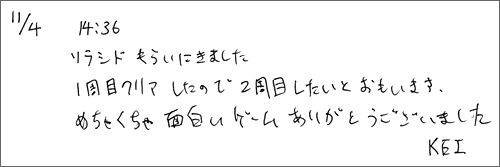 11/4 14:36
ソラシド もらいにきました
1周目クリア したので 2周目したいとおもいます.
めちゃくちゃ 面白いゲーム ありがとうございました
KEI